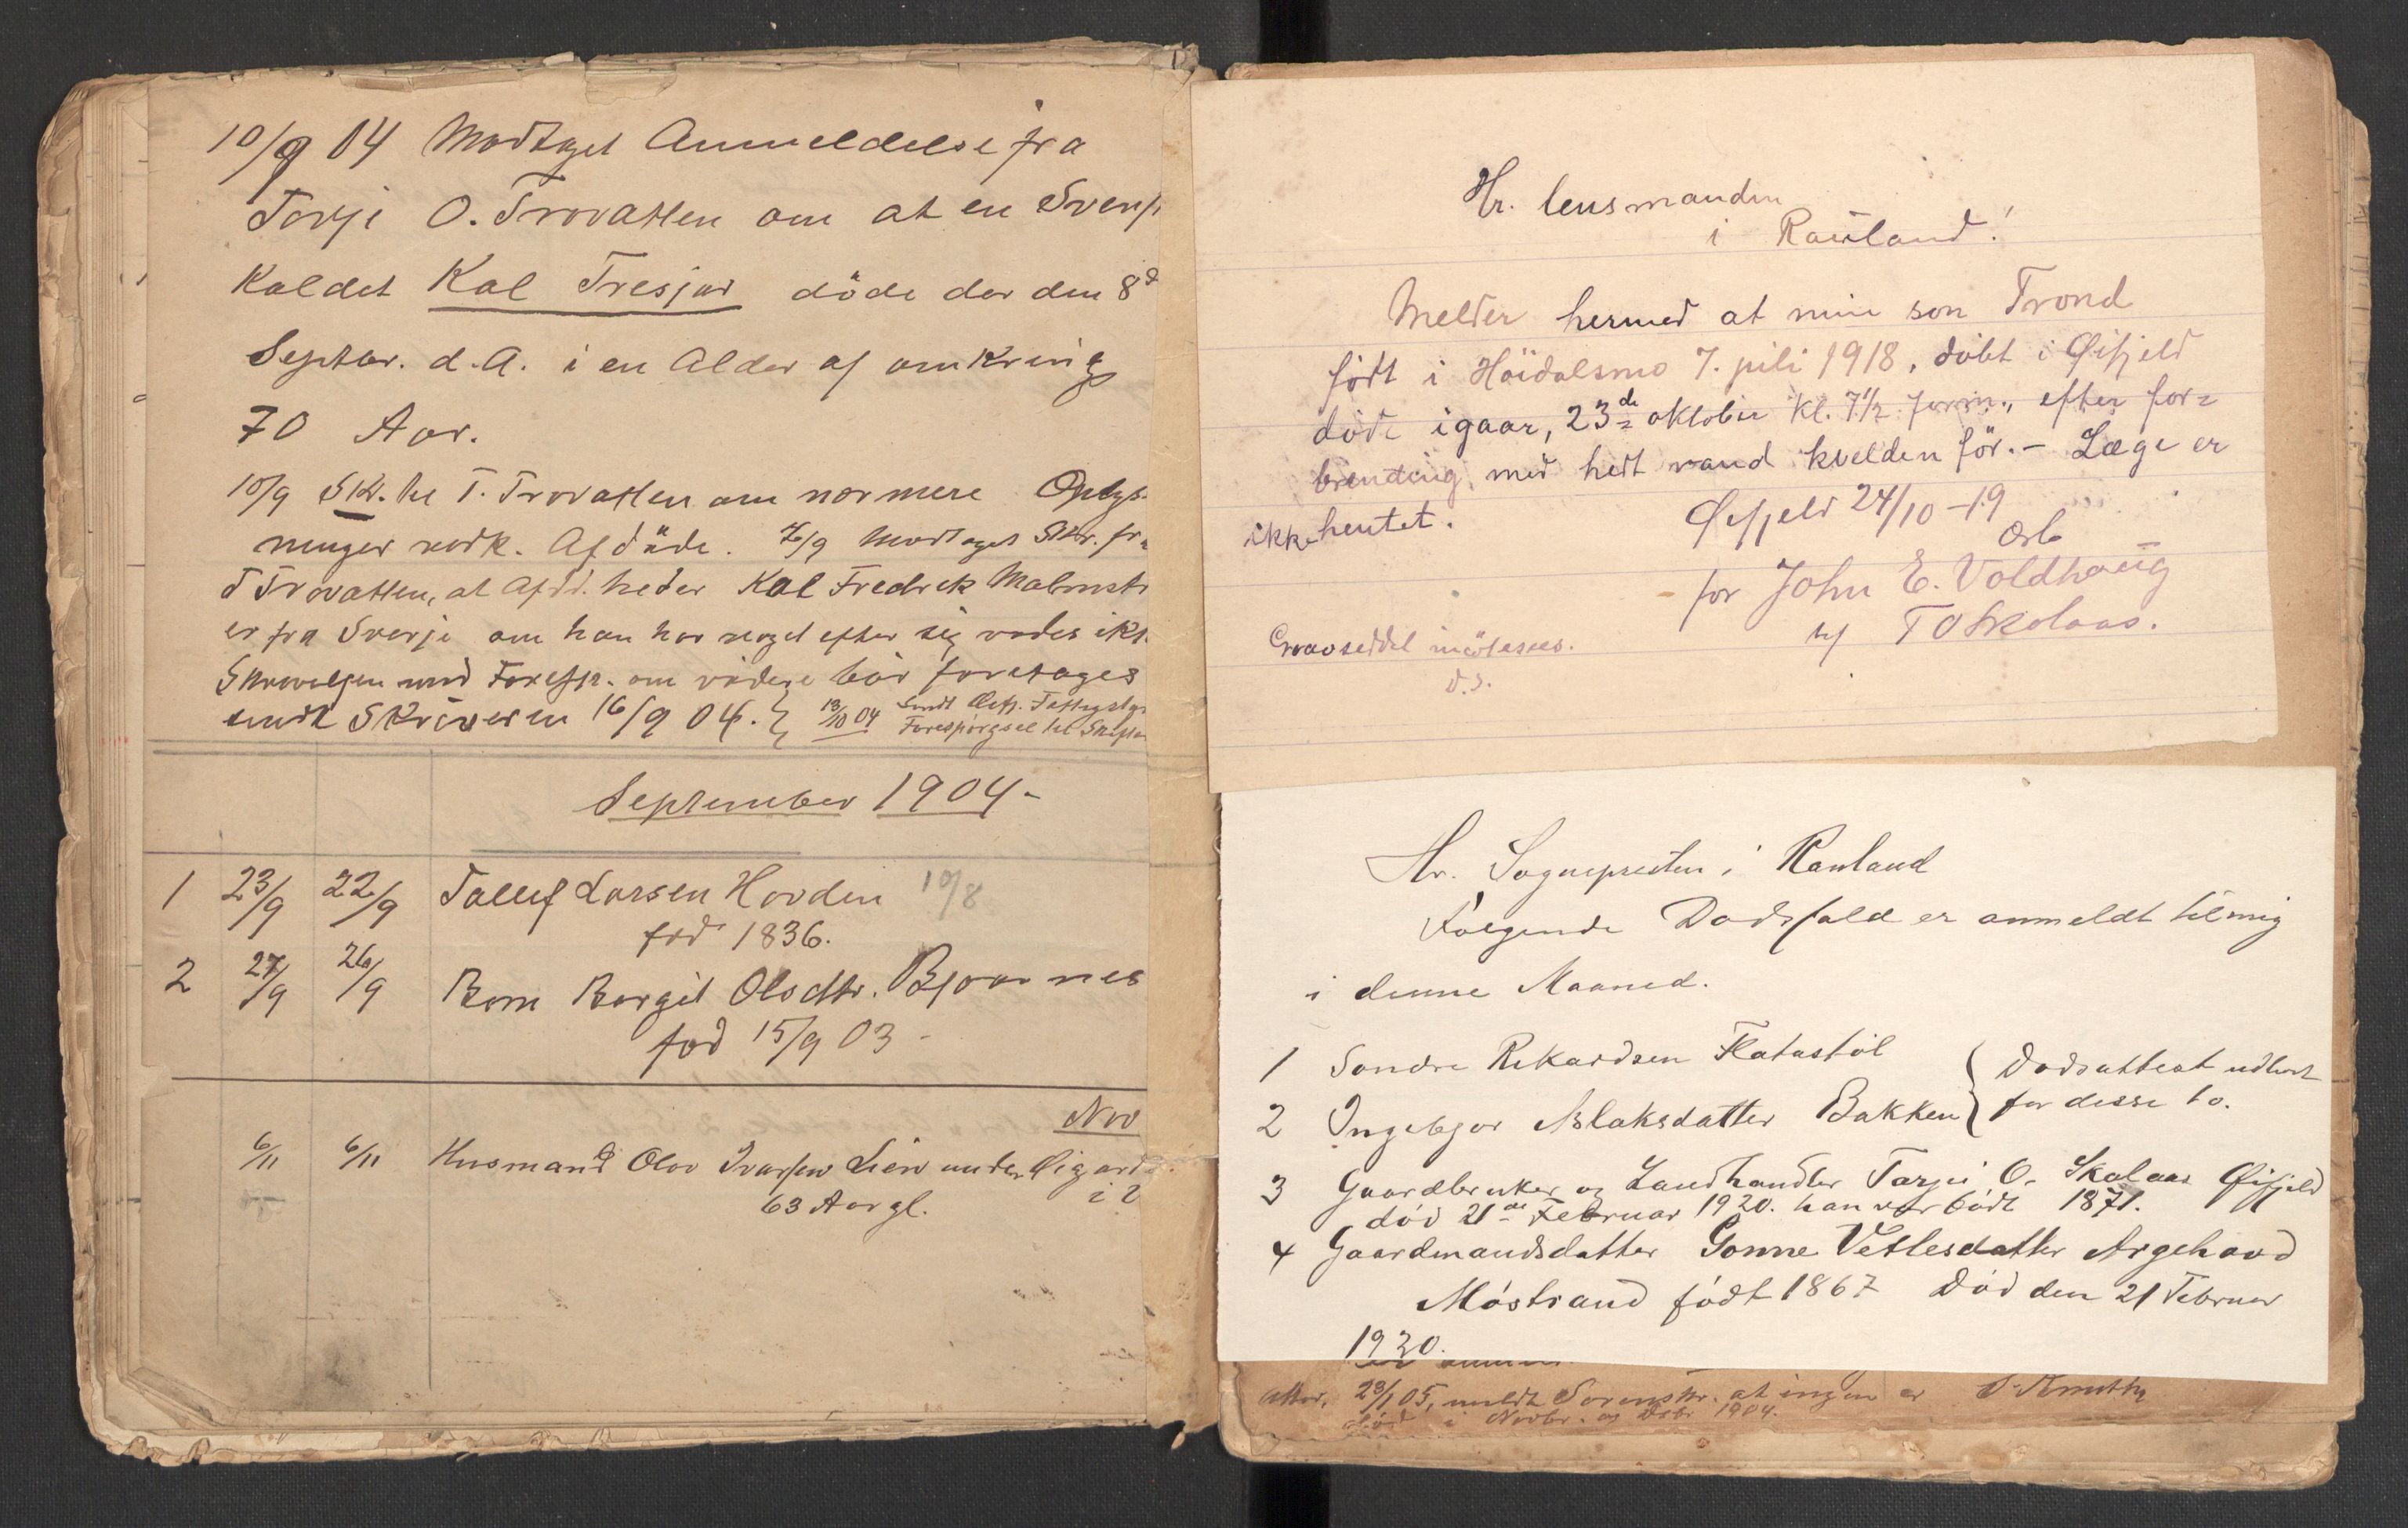 10/9 04 Modtaget Anmeldelse fra
Torje O. Trovatten om at en Svensk
Kaldet Kal Tresjar döde der den 8d
Septbr. d.A. i en Alder af omkring
70 Aar.
10/9 Skr. til T. Trovatten om nærmere Oplys-
ninger vedk. Afdöde. Modtaget Skr. fra
T Trovatten, at Afdd. heder Kal Fredrek Malmst
er fra Sverje om han har noget efter sig vides ikke
Skrivelsen med Forespr. om videre bör foretages
sendt Skriveren 16/9 04. } 13/10 04 Sendt
Forespörgsel til
September 1904-
1 23/9 22/9 Tallef Larsen Hovden 10/8
fød 1836.
2 27/9 26/9 Barn Borgil Olsdtr. Bjaarnes
fød 15/9 03 -
Nov
6/11 6/11 Husmand Olav Ivarsen Lien under Øigard
63 Aar gl. i
Hr. lensmanden
i Rauland!
Melder hermed at min son Trond
født i Höidalsmo 7. juli 1918, döbt i Øifjeld
döde igaar, 23de oktober kl. 7 1/2 form., efter for=
brending med hedt vand kvelden för. - Læge er
ikke hentet.
Øifjeld 24/10 -19
Erb
for John E. Voldhaug
T O Skolaas.
Gravseddel imötesees.
D.S.
Hr. Sognepresten i Rauland
Følgende Dødsfald er anmeldt til mig
i denne Maaned.
1 Sondre Rikardsen Flatastøl { Dødsattest udstedt
2 Ingebjør Aslaksdatter Bakken { for desse to.
3 Gaardbruker og Landhandler Tarjei O. Skolaas Øifjeld
død 21de Februar 1920. han var født 1871.
4 Gaardmandsdatter Gonne Vetlesdatter Argehovd
Møstrand født 1867 Død den 21 Februar
1920.
23/1 05, meldt Sorenskr. at ingen er
död i Novbr. og Dsbr 1904.